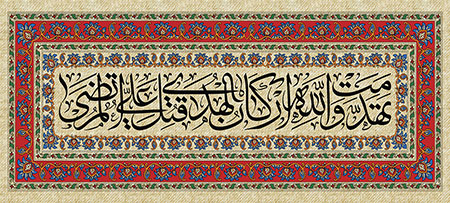 تهدمت والله ارکان الهدی قتل علی المرتضی